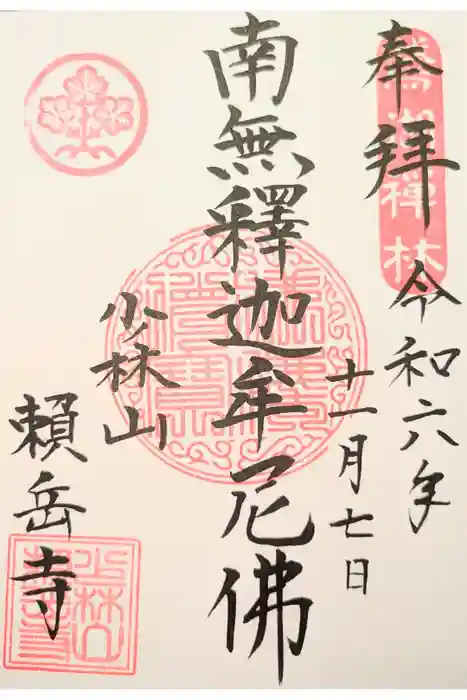 奉拝
令和六年
十一月七日
南無釋迦牟尼佛
少林山
賴岳寺